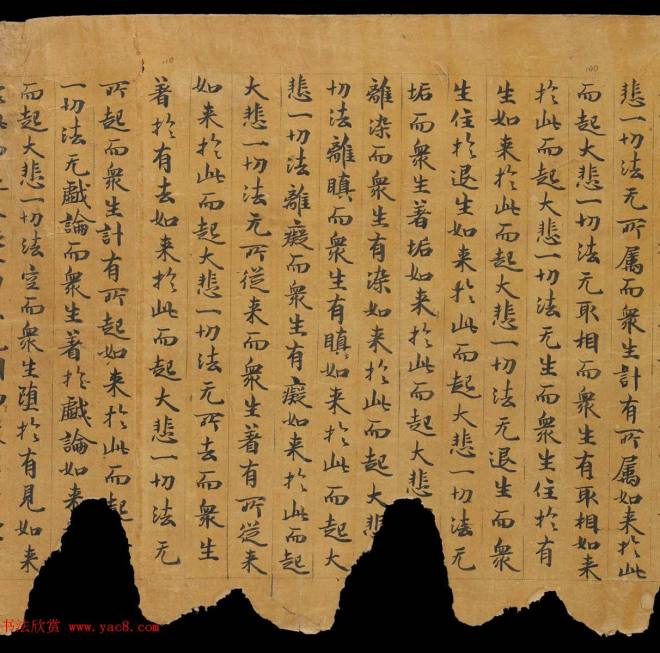 悲一切法无所属而衆生計有所属如来於此
而起大悲一切法无取相而衆生有取相如来
於此而起大悲一切法无生而衆生住於有
生如来於此而起大悲一切法无退生而衆
生住於退生如来於此而起大悲一切法无
垢而衆生著垢如来於此而起大悲
離染而衆生有染如来於此而起大悲
切法離瞋而衆生有瞋如来於此而起大
悲一切法離癡而衆生有癡如来於此而起
大悲一切法无所従来而衆生著有所従来
如来於此而起大悲一切法无所去而衆生
著於有去如来於此而起大悲一切法无
所起而衆生計有所起如来於此而起
一切法无戲論而衆生著於戲論如来
而起大悲一切法空而衆生堕於有見如来
书法欣赏 www.yac8.com